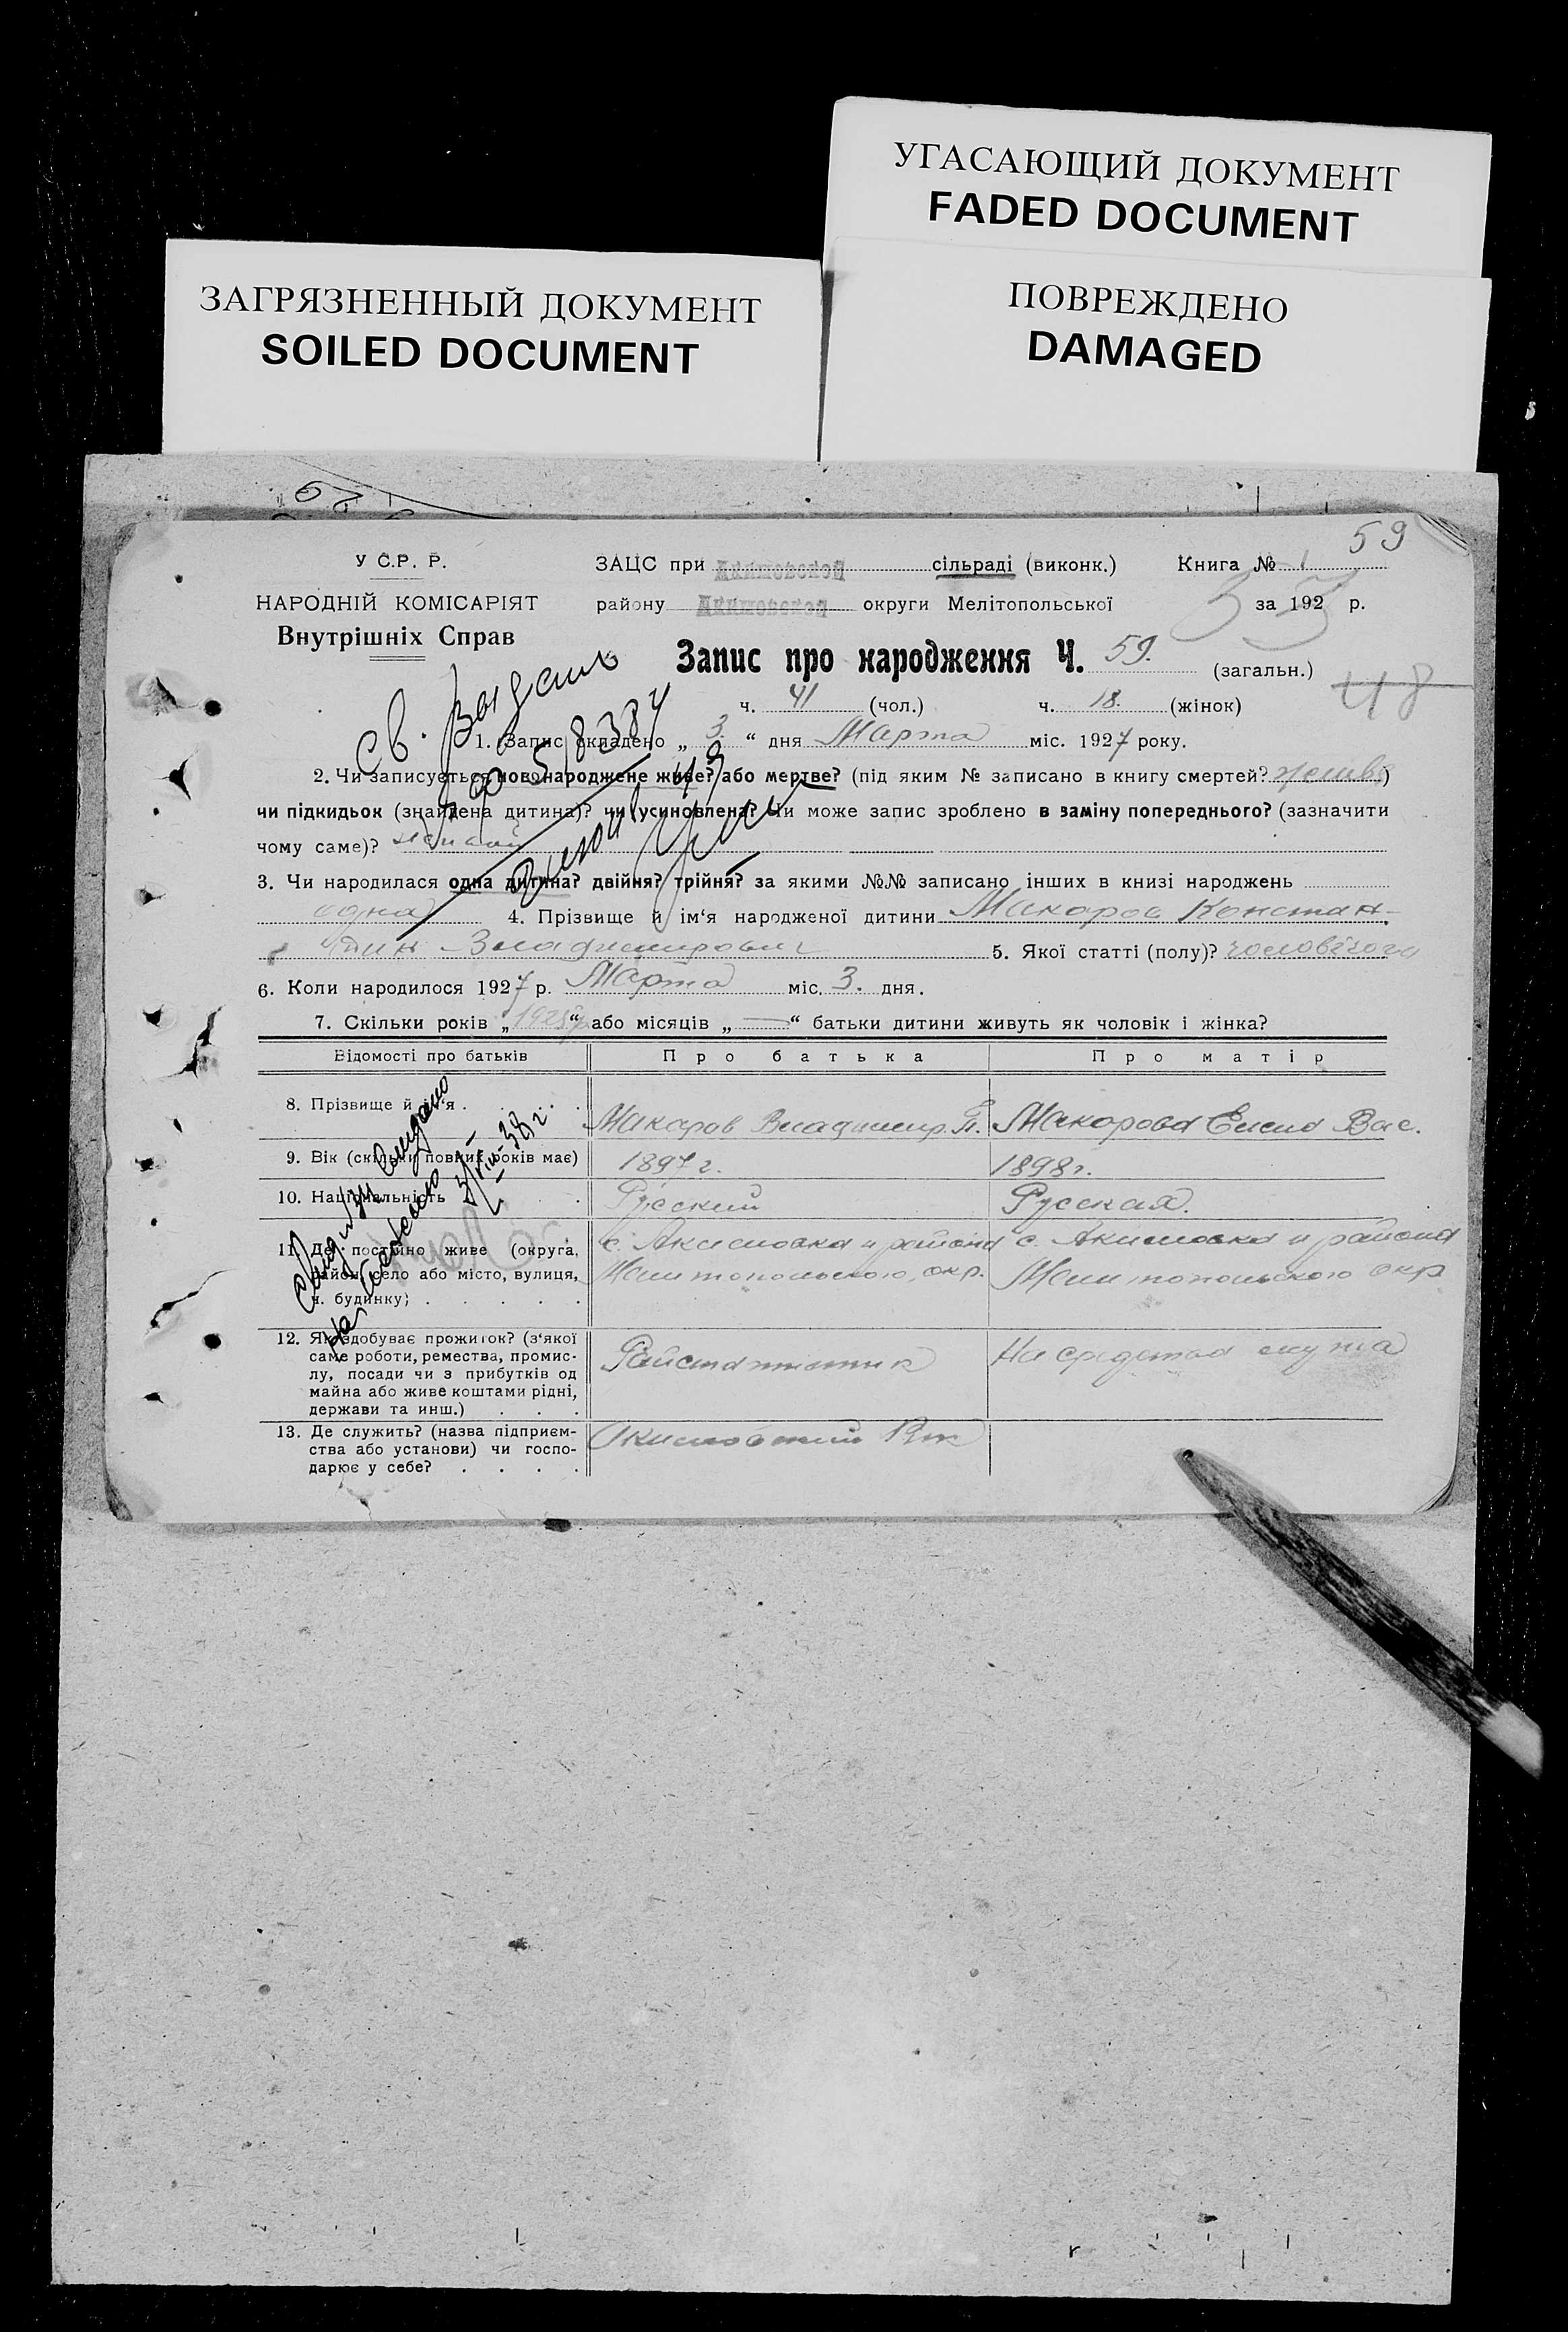 УГАСАЮЩИЙ ДОКУМЕНТ
FADED DOCUMENT
ЗАГРЯЗНЕННЫЙ ДОКУМЕНТ
SOILED DOCUMENT
ПОВРЕЖДЕНО
DAMAGED
59
У С.Р. Р.
НАРОДНІЙ КОМІСАРІЯТ
Внутрішніх Справ
ЗАЦС при сільраді (виконк.) Книга № 1
району округи Мелітопольської за 192 р.
Запис про народження Ч. 59. (загальн.)
48
ч. 41 (чол.) ч. 18. (жінок)
1. Запис складено „ 3. “ дня Марта міс. 1927 року.
2. Чи записується новонароджене живе? або мертве? (під яким № записано в книгу смертей? )
чи підкидьок (знайдена дитина)? чи усиновлена? Чи може запис зроблено в заміну попереднього? (зазначити
чому саме)?
3. Чи народилася одна дитина? двійня? трійня? за якими №№ записано інших в книзі народжень
одна 4. Прізвище й ім‘я народженої дитини Макаров Констан-
тин Владимирович 5. Якої статті (полу)? чоловічого
6. Коли народилося 1927 р. Марта міс. 3. дня.
7. Скільки років „ “ або місяців „ — “ батьки дитини живуть як чоловік і жінка?
Відомості про батьків Про батька Про матір
8. Прізвище й ім‘я . Макаров Владимир П. Макарова Елена Вас.
9. Вік (скільки повних років має) 1897 г. 1898 г.
10. Національність Русский Русская.
11. Де постійно живе (округа, с. Акимовка и района с. Акимовка и района
район, село або місто, вулиця, Мелитопольского, окр. Мелитопольского окр
ч. будинку) . . . . .
12. Як здобуває прожиток? (з‘якої
саме роботи, ремества, промис- Райстатистик На средства мужа
лу, посади чи з прибутків од
майна або живе коштами рідні,
держави та инш.) . . .
13. Де служить? (назва підприєм- Акимовский Рик
ства або установи) чи госпо-
дарює у себе? . . . .